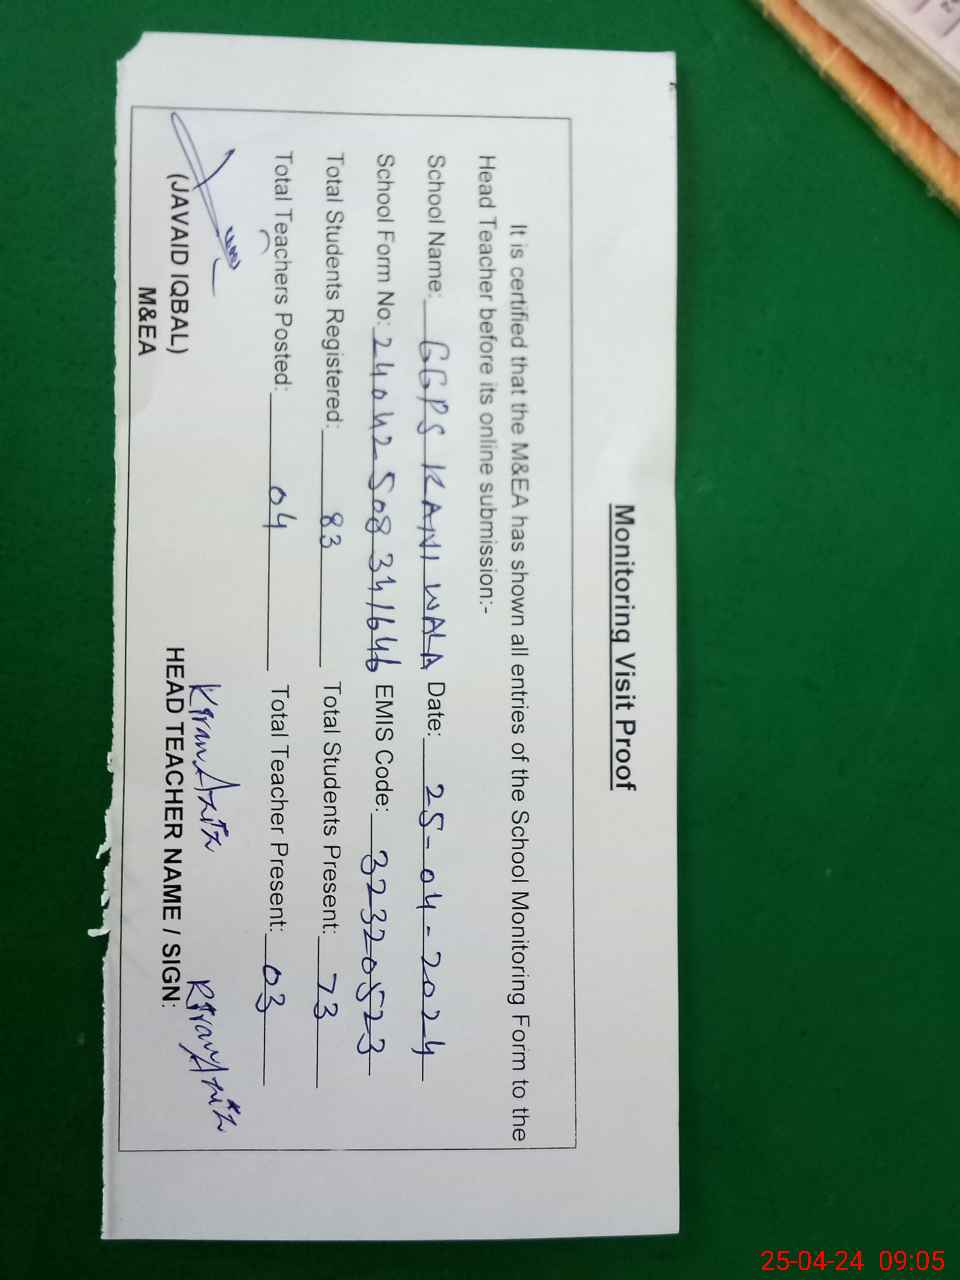 Monitoring Visit Proof
It is certified that the M&EA has shown all entries of the School Monitoring Form to the
Head Teacher before its online submission:-
School Name: GGPS KANI WALA Date: 25-04-2024
School Form No: 24042508341646 EMIS Code: 32320523
Total Students Registered: 83 Total Students Present: 73
Total Teachers Posted: 04 Total Teacher Present: 03
Kiran Aziz Kiran Aziz
(JAVAID IQBAL) HEAD TEACHER NAME / SIGN:
M&EA
25-04-24 09:05